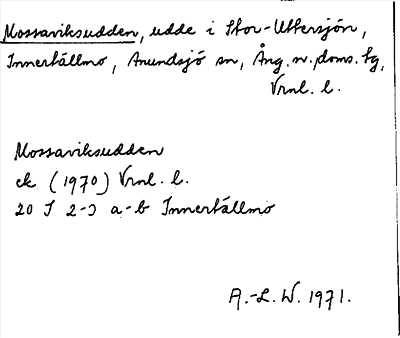 Mossaviksudden, udde i Stor-Uttersjön,
Innertällmo, Anundsjö sn, Ång. n. doms. tg,
Vrnl. l.
Mossaviksudden
ek (1970) Vrnl. l.
20 I 2-3 a-b Innertällmo
A.-L. W. 1971.